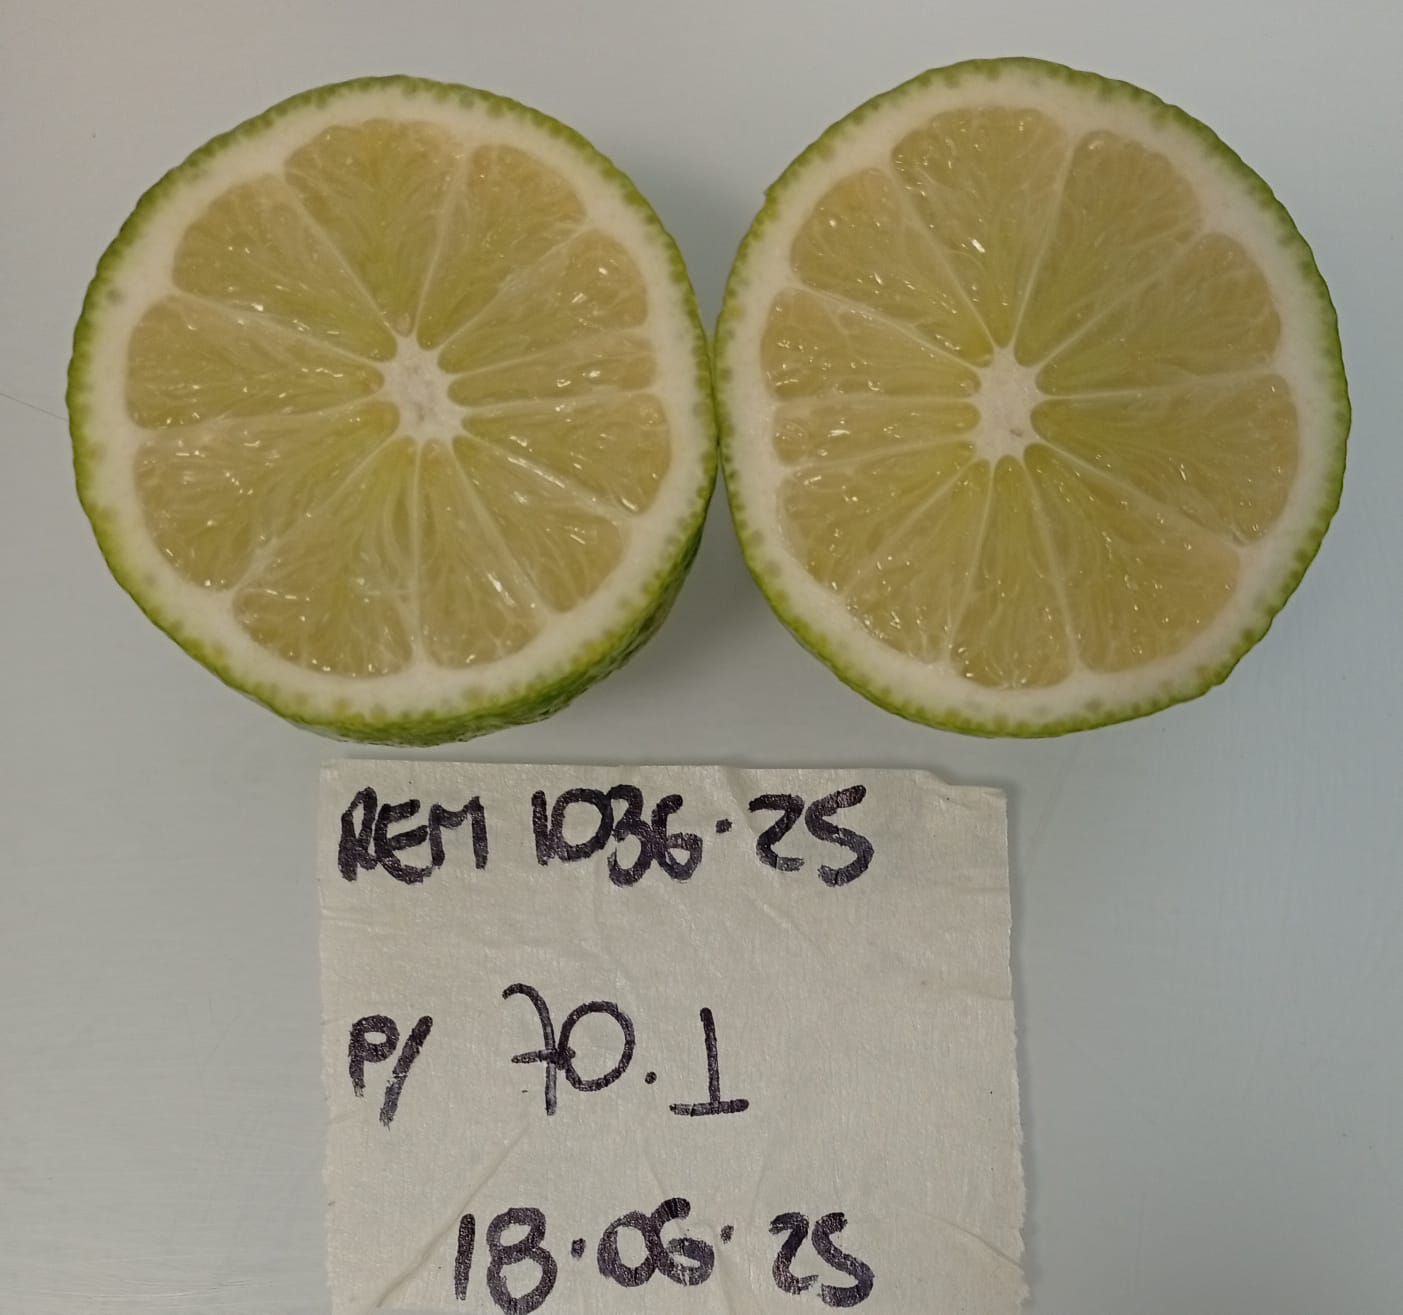 REM 1036·25
P/ 70.1
18·06·25